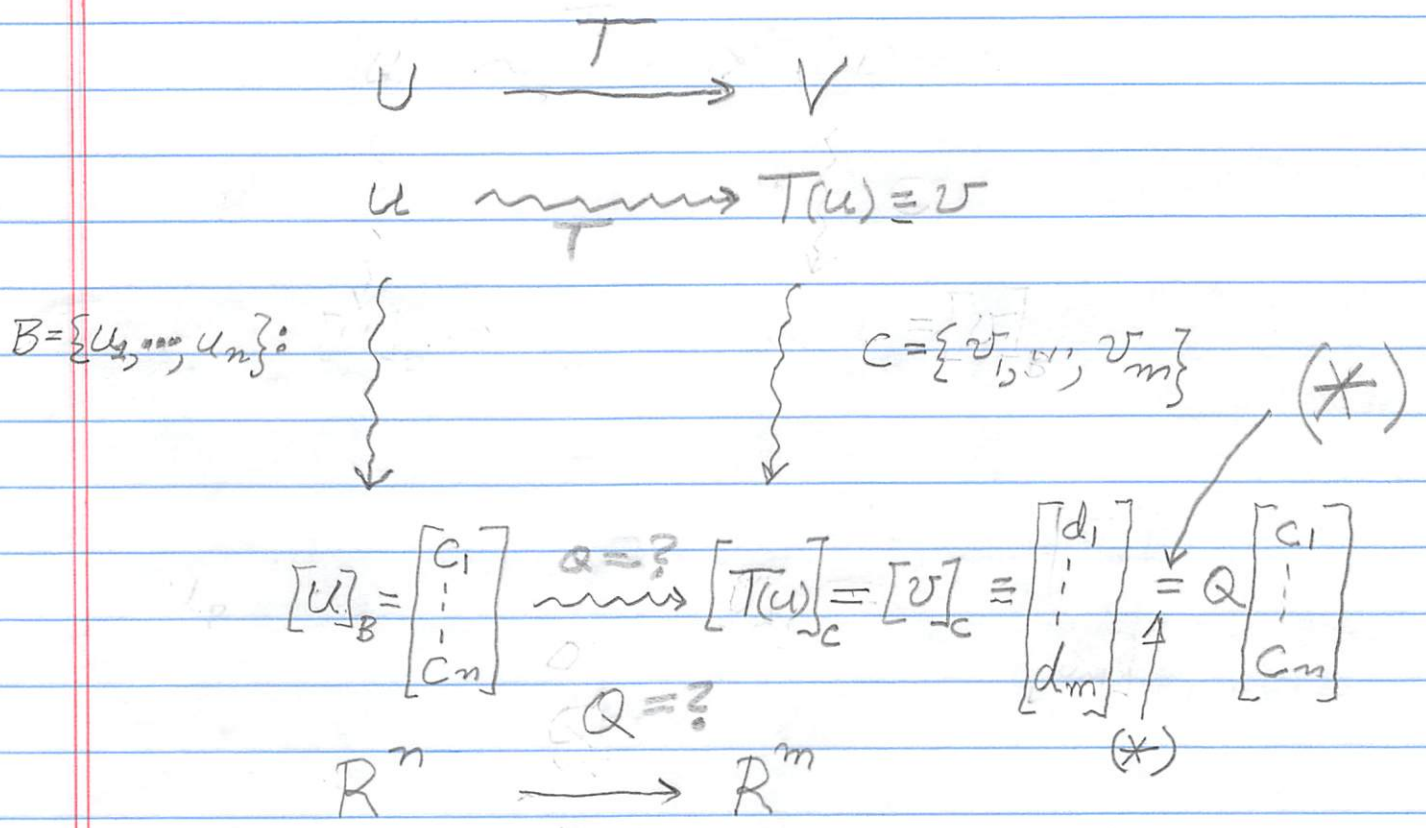 T
U → V
u ⇝ T(u) ≡ v
T
B={u₁,...,uₙ}: C={v₁,...,vₘ} (*)
[u]_B = [c₁ ⋮ cₙ] Q=? ⇝ [T(u)]_C = [v]_C ≡ [d₁ ⋮ dₘ] = Q [c₁ ⋮ cₙ]
Q=? (*)
Rⁿ → Rᵐ